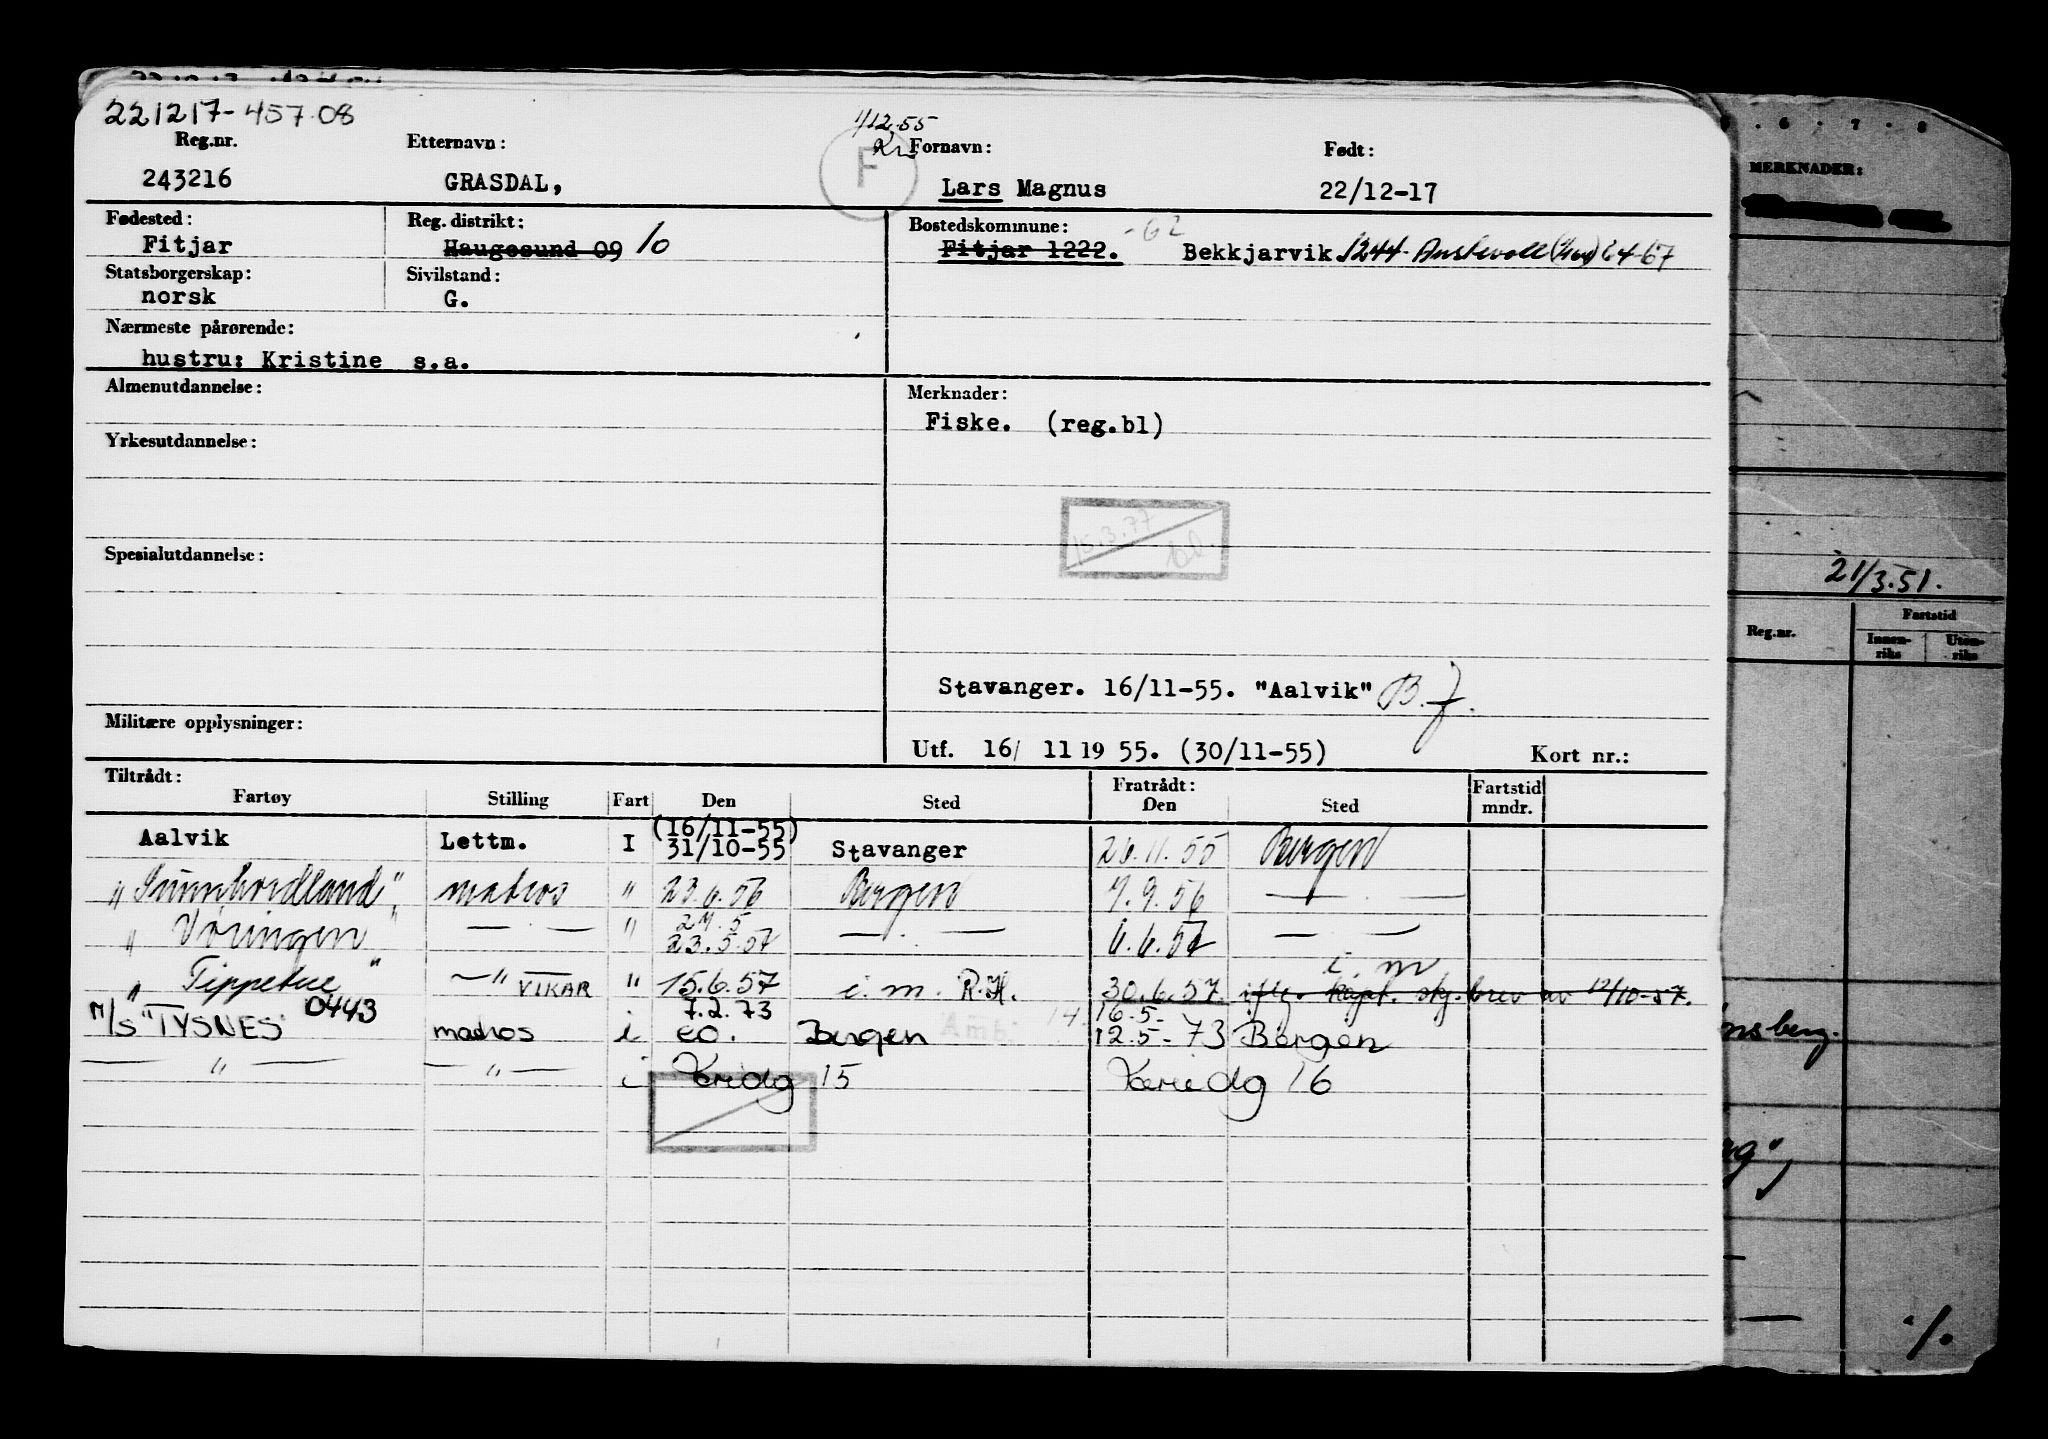 221217-457.08
1/12.55
Reg.nr. Etternavn: F Fornavn: Født:
243216 GRASDAL, Lars Magnus 22/12-17
Fødested: Reg. distrikt: Bostedskommune: -62
Fitjar Haugesund 09 10 Fitjar 1222. Bekkjarvik 1244- Austevoll 64-67
Statsborgerskap: Sivilstand:
norsk G.
Nærmeste pårørende:
hustru: Kristine s.a.
Almenutdannelse: Merknader:
Fiske. (reg.bl)
Yrkesutdannelse:
15.3.77
Spesialutdannelse:
Stavanger. 16/11-55. "Aalvik" B.f.
Militære opplysninger:
Utf. 16/ 11 19 55. (30/11-55) Kort nr.:
Tiltrådt: Fratrådt: Fartstid
Fartøy Stilling Fart Den Sted Den Sted mndr.
(16/11-55)
Aalvik Lettm. I 31/10-55 Stavanger 26.11.55 Bergen
"Sunnhordland" matros " 23.6.56 Bergen 7.9.56 — . —
24.5
"Vøringen" — . — " 23.5.57 — . — 6.6.57 — . —
i. m
"Tippetue" — " VIKAR " 15.6.57 i. m. R.H. 30.6.57. iflg. kapt. skj. brev av 12/10-57.
0443 7.2.73 16.5-
M/S "TYSNES" matros i eo. Bergen 12.5-73 Bergen
— " — — " — i Koridg 15 Koriedg 16
6 . 7 . 8
MERKNADER:
21/3.51.
Reg.nr. Fartstid
Innenriks Utenriks
nsberg.
rg"